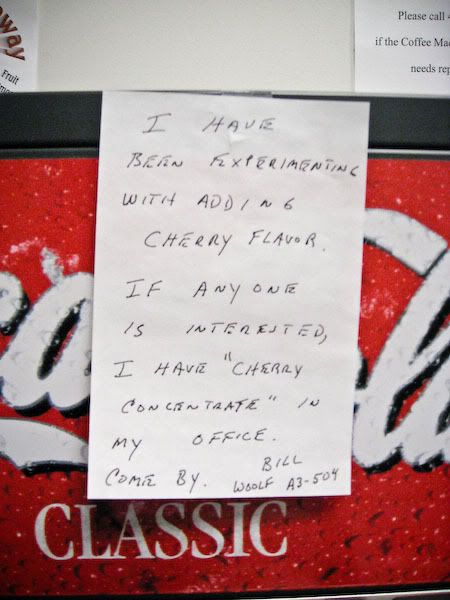 away
Fruit
Please call
if the Coffee Mac
needs rep
I HAVE
BEEN EXPERIMENTING
WITH ADDING
CHERRY FLAVOR.
IF ANYONE
IS INTERESTED,
I HAVE "CHERRY
CONCENTRATE" IN
MY OFFICE.
COME BY. BILL
WOOLF A3-504
CLASSIC